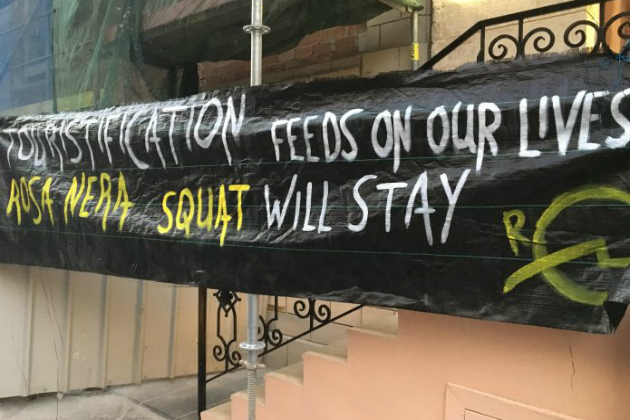 TOURISTIFICATION FEEDS ON OUR LIVES
ROSA NERA SQUAT WILL STAY
R